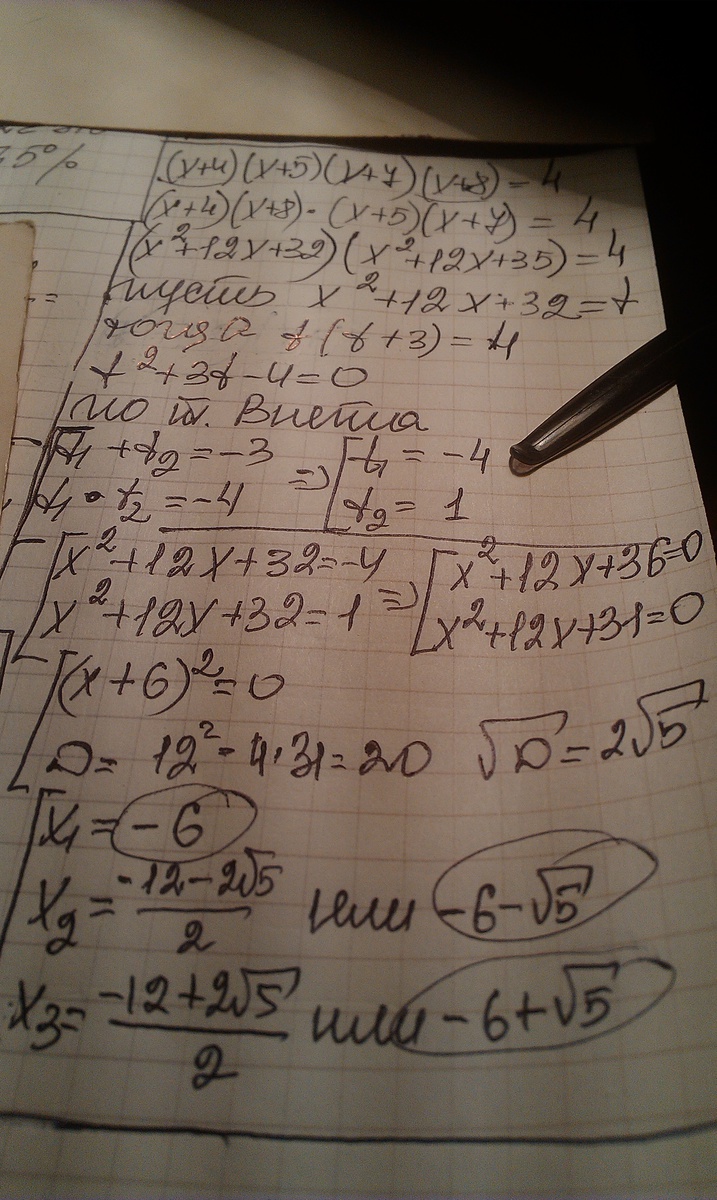 35%
(x+4)(x+5)(x+7)(x+8)=4
(x+4)(x+8)·(x+5)(x+7)=4
(x²+12x+32)(x²+12x+35)=4
пусть x²+12x+32=t
тогда t(t+3)=4
t²+3t-4=0
по т. Виета
t₁+t₂=-3 => t₁=-4
t₁·t₂=-4 t₂=1
x²+12x+32=-4 => x²+12x+36=0
x²+12x+32=1 x²+12x+31=0
(x+6)²=0
D=12²-4·31=20 √D=2√5
x₁=-6
x₂=(-12-2√5)/2 или -6-√5
x₃=(-12+2√5)/2 или -6+√5